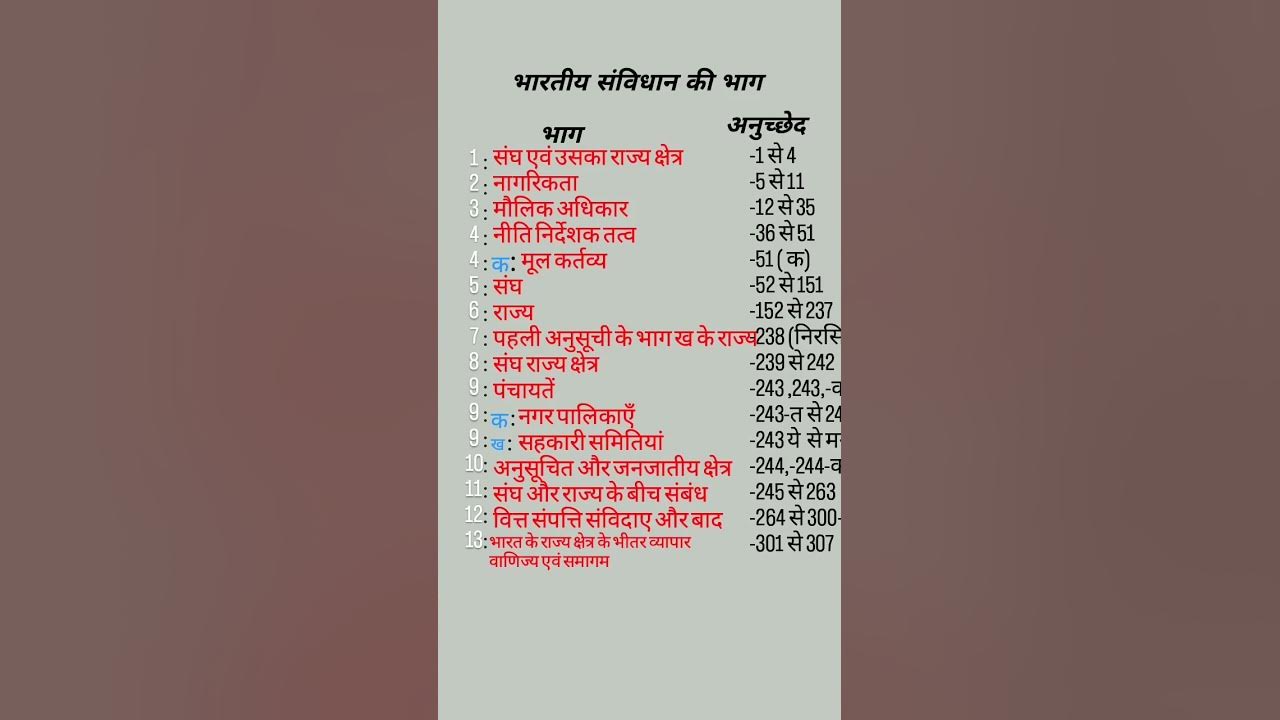 भारतीय संविधान की भाग
भाग अनुच्छेद
1 : संघ एवं उसका राज्य क्षेत्र -1 से 4
2 : नागरिकता -5 से 11
3 : मौलिक अधिकार -12 से 35
4 : नीति निर्देशक तत्व -36 से 51
4 : क : मूल कर्तव्य -51 ( क)
5 : संघ -52 से 151
6 : राज्य -152 से 237
7 : पहली अनुसूची के भाग ख के राज्य -238
8 : संघ राज्य क्षेत्र -239 से 242
9 : पंचायतें -243 ,243,-
9 : क : नगर पालिकाएँ -243-त से
9 : ख : सहकारी समितियां -243 ये से
10: अनुसूचित और जनजातीय क्षेत्र -244,-244-
11: संघ और राज्य के बीच संबंध -245 से 263
12: वित्त संपत्ति संविदाए और बाद -264 से 300-
13: भारत के राज्य क्षेत्र के भीतर व्यापार -301 से 307
वाणिज्य एवं समागम